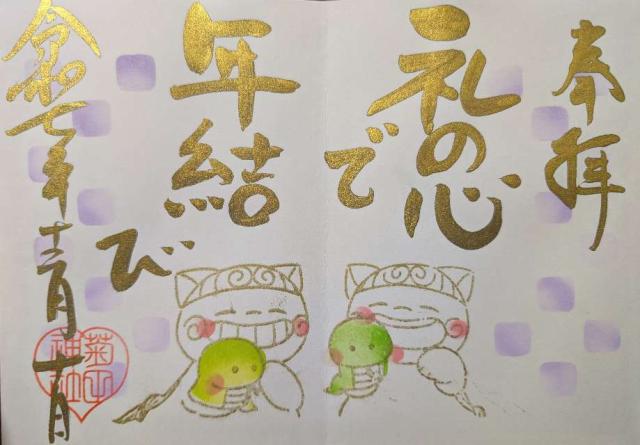 奉拝
礼の心
で
年結
び
令和七年十二月
菊田
神社